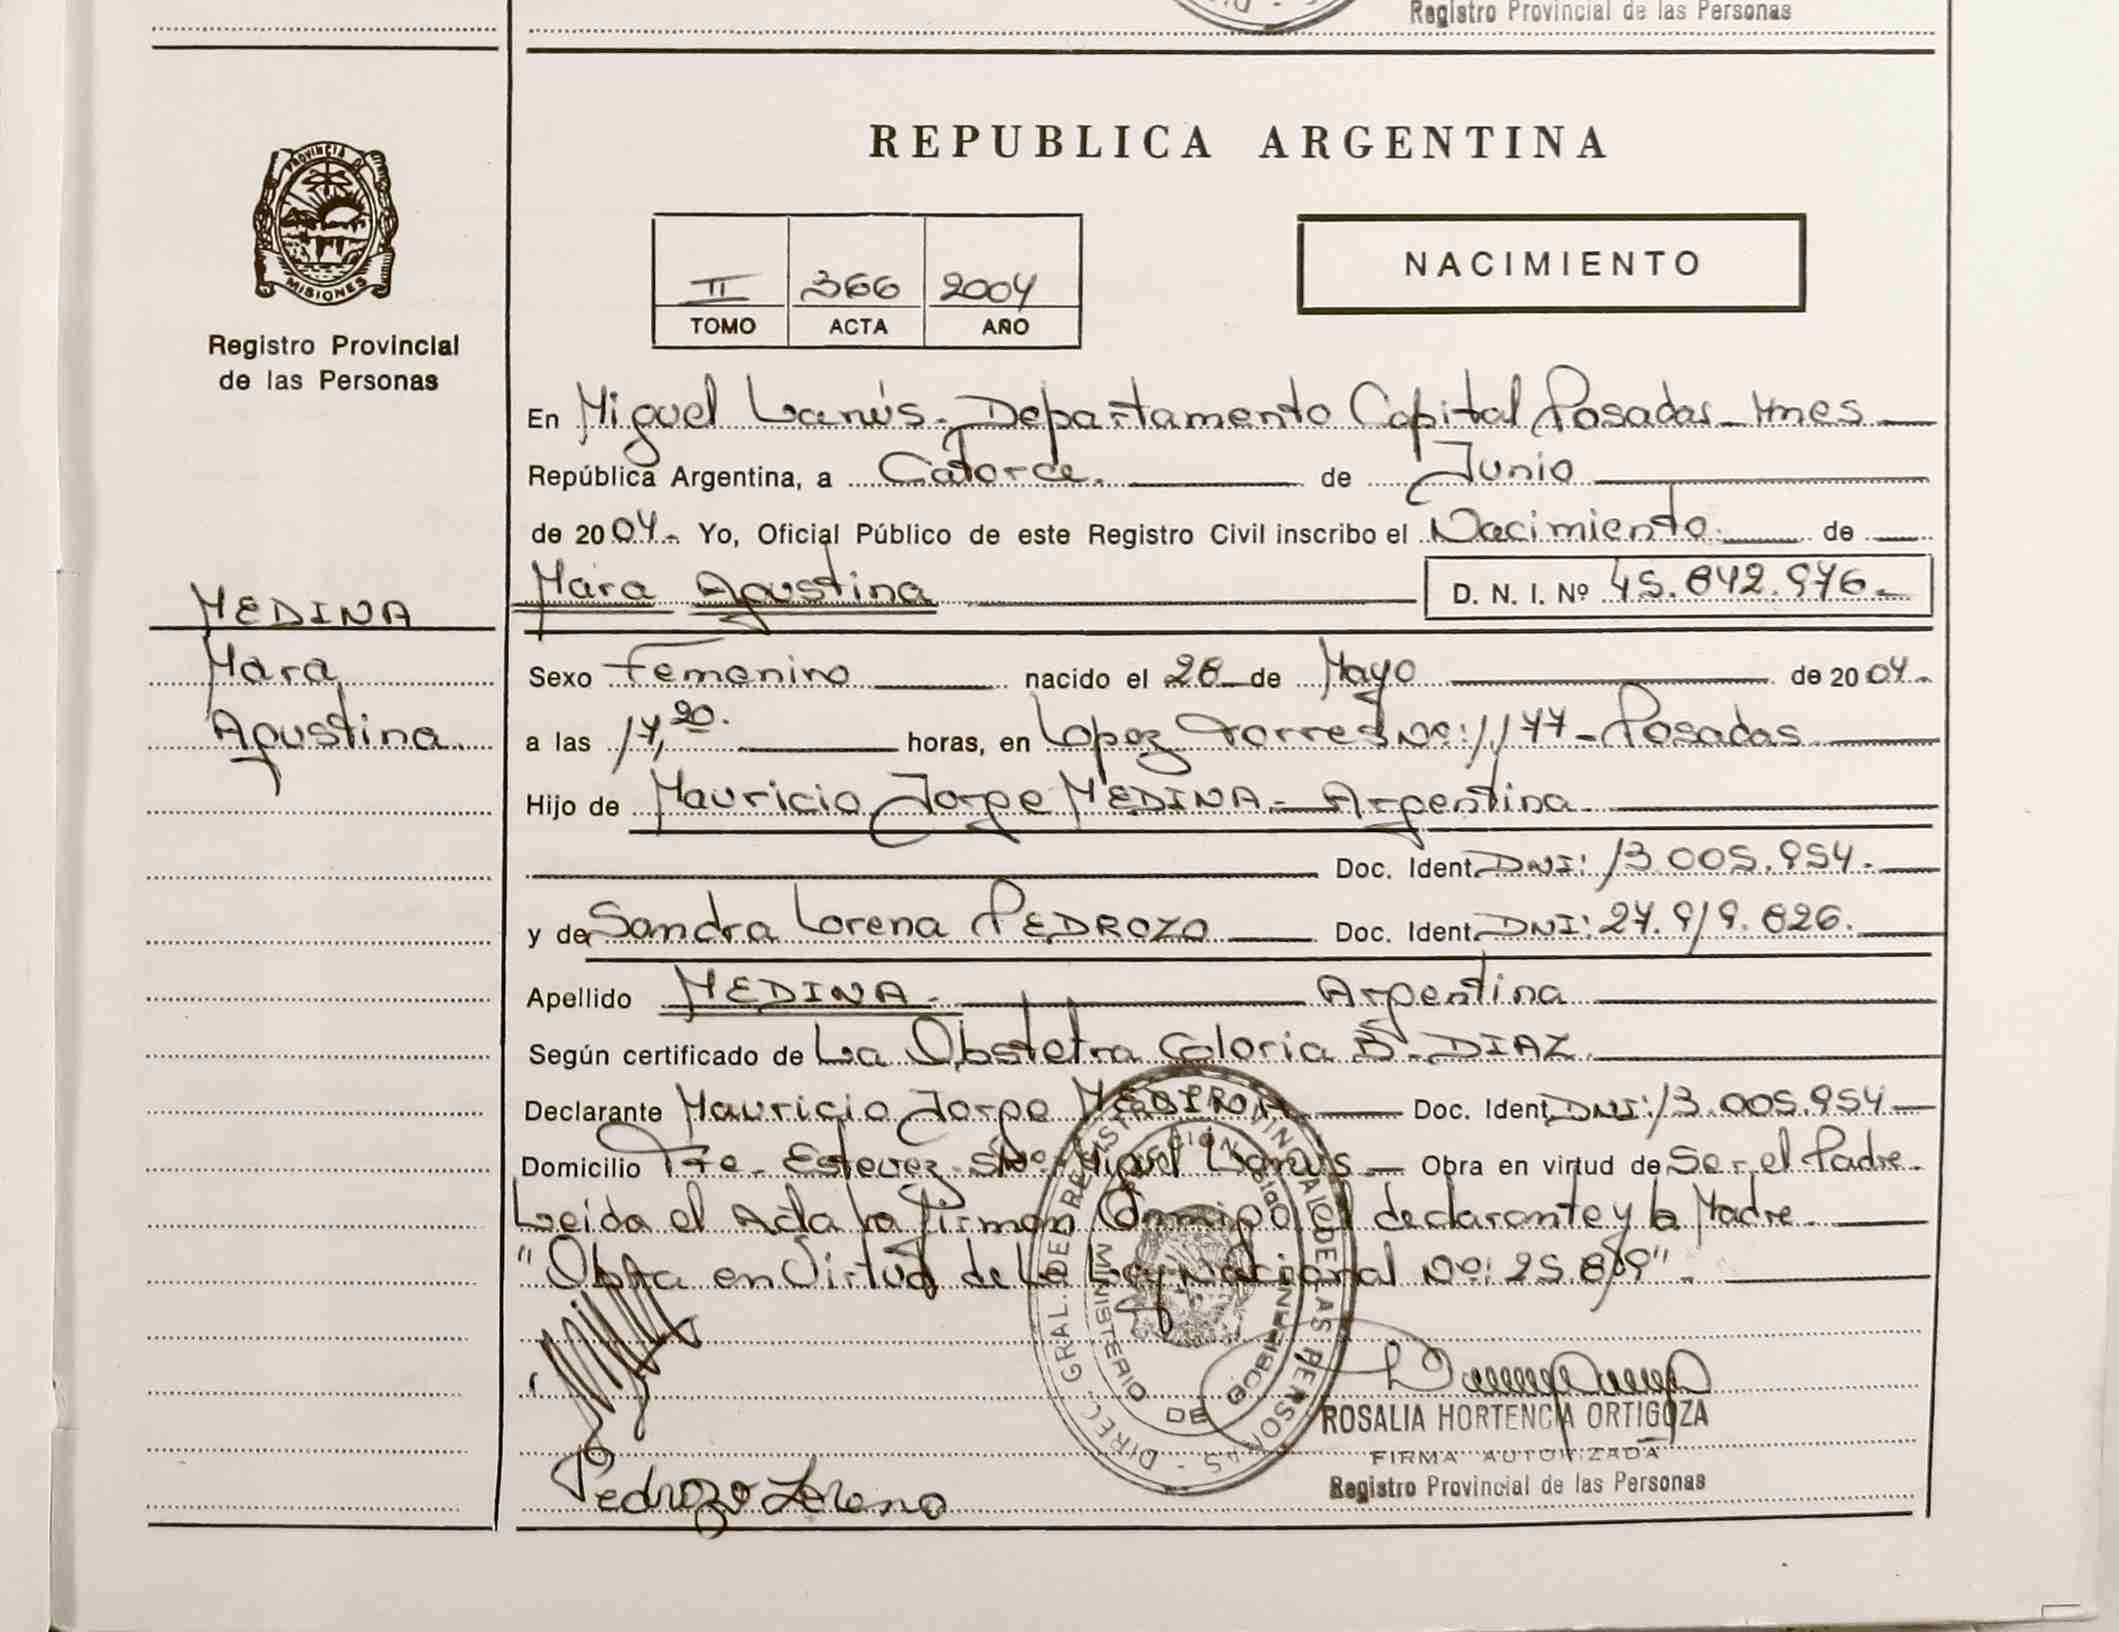 Registro Provincial de las Personas
PROVINCIA DE
MISIONES
Registro Provincial
de las Personas
MEDINA
Mara
Agustina
REPUBLICA ARGENTINA
II 366 2004
TOMO ACTA AÑO
NACIMIENTO
En Miguel Lanús. Departamento Capital Posadas Mnes
República Argentina, a Catorce. de Junio
de 2004. Yo, Oficial Público de este Registro Civil inscribo el Nacimiento de
Mara Agustina D. N. I. Nº 45.842.976.
Sexo Femenino nacido el 28 de Mayo de 2004.
a las 17,20. horas, en Lopez Torres No: 1177 - Posadas
Hijo de Mauricio Jorge MEDINA - Argentina
Doc. Ident. DNI: 13.005.954.
y de Sandra Lorena PEDROZO Doc. Ident. DNI: 27.919.826.
Apellido MEDINA. Argentina
Según certificado de La Obstetra Gloria B. DIAZ
Declarante Mauricio Jorge MEDINA Doc. Ident. DNI: 13.005.954
Domicilio Tte. Estevez S/No: Miguel Lanus Obra en virtud de Ser el Padre.
Leida el Acta la firman Conmigo el declarante y la Madre
"Obra en Virtud de la Ley Nacional No: 25.819".
DIREC. GRAL. DEL REGIST. PROVINCIAL DE LAS PERSONAS
MINISTERIO DE GOBIERNO
ROSALIA HORTENCIA ORTIGOZA
FIRMA AUTORIZADA
Registro Provincial de las Personas
Pedrozo Lorena